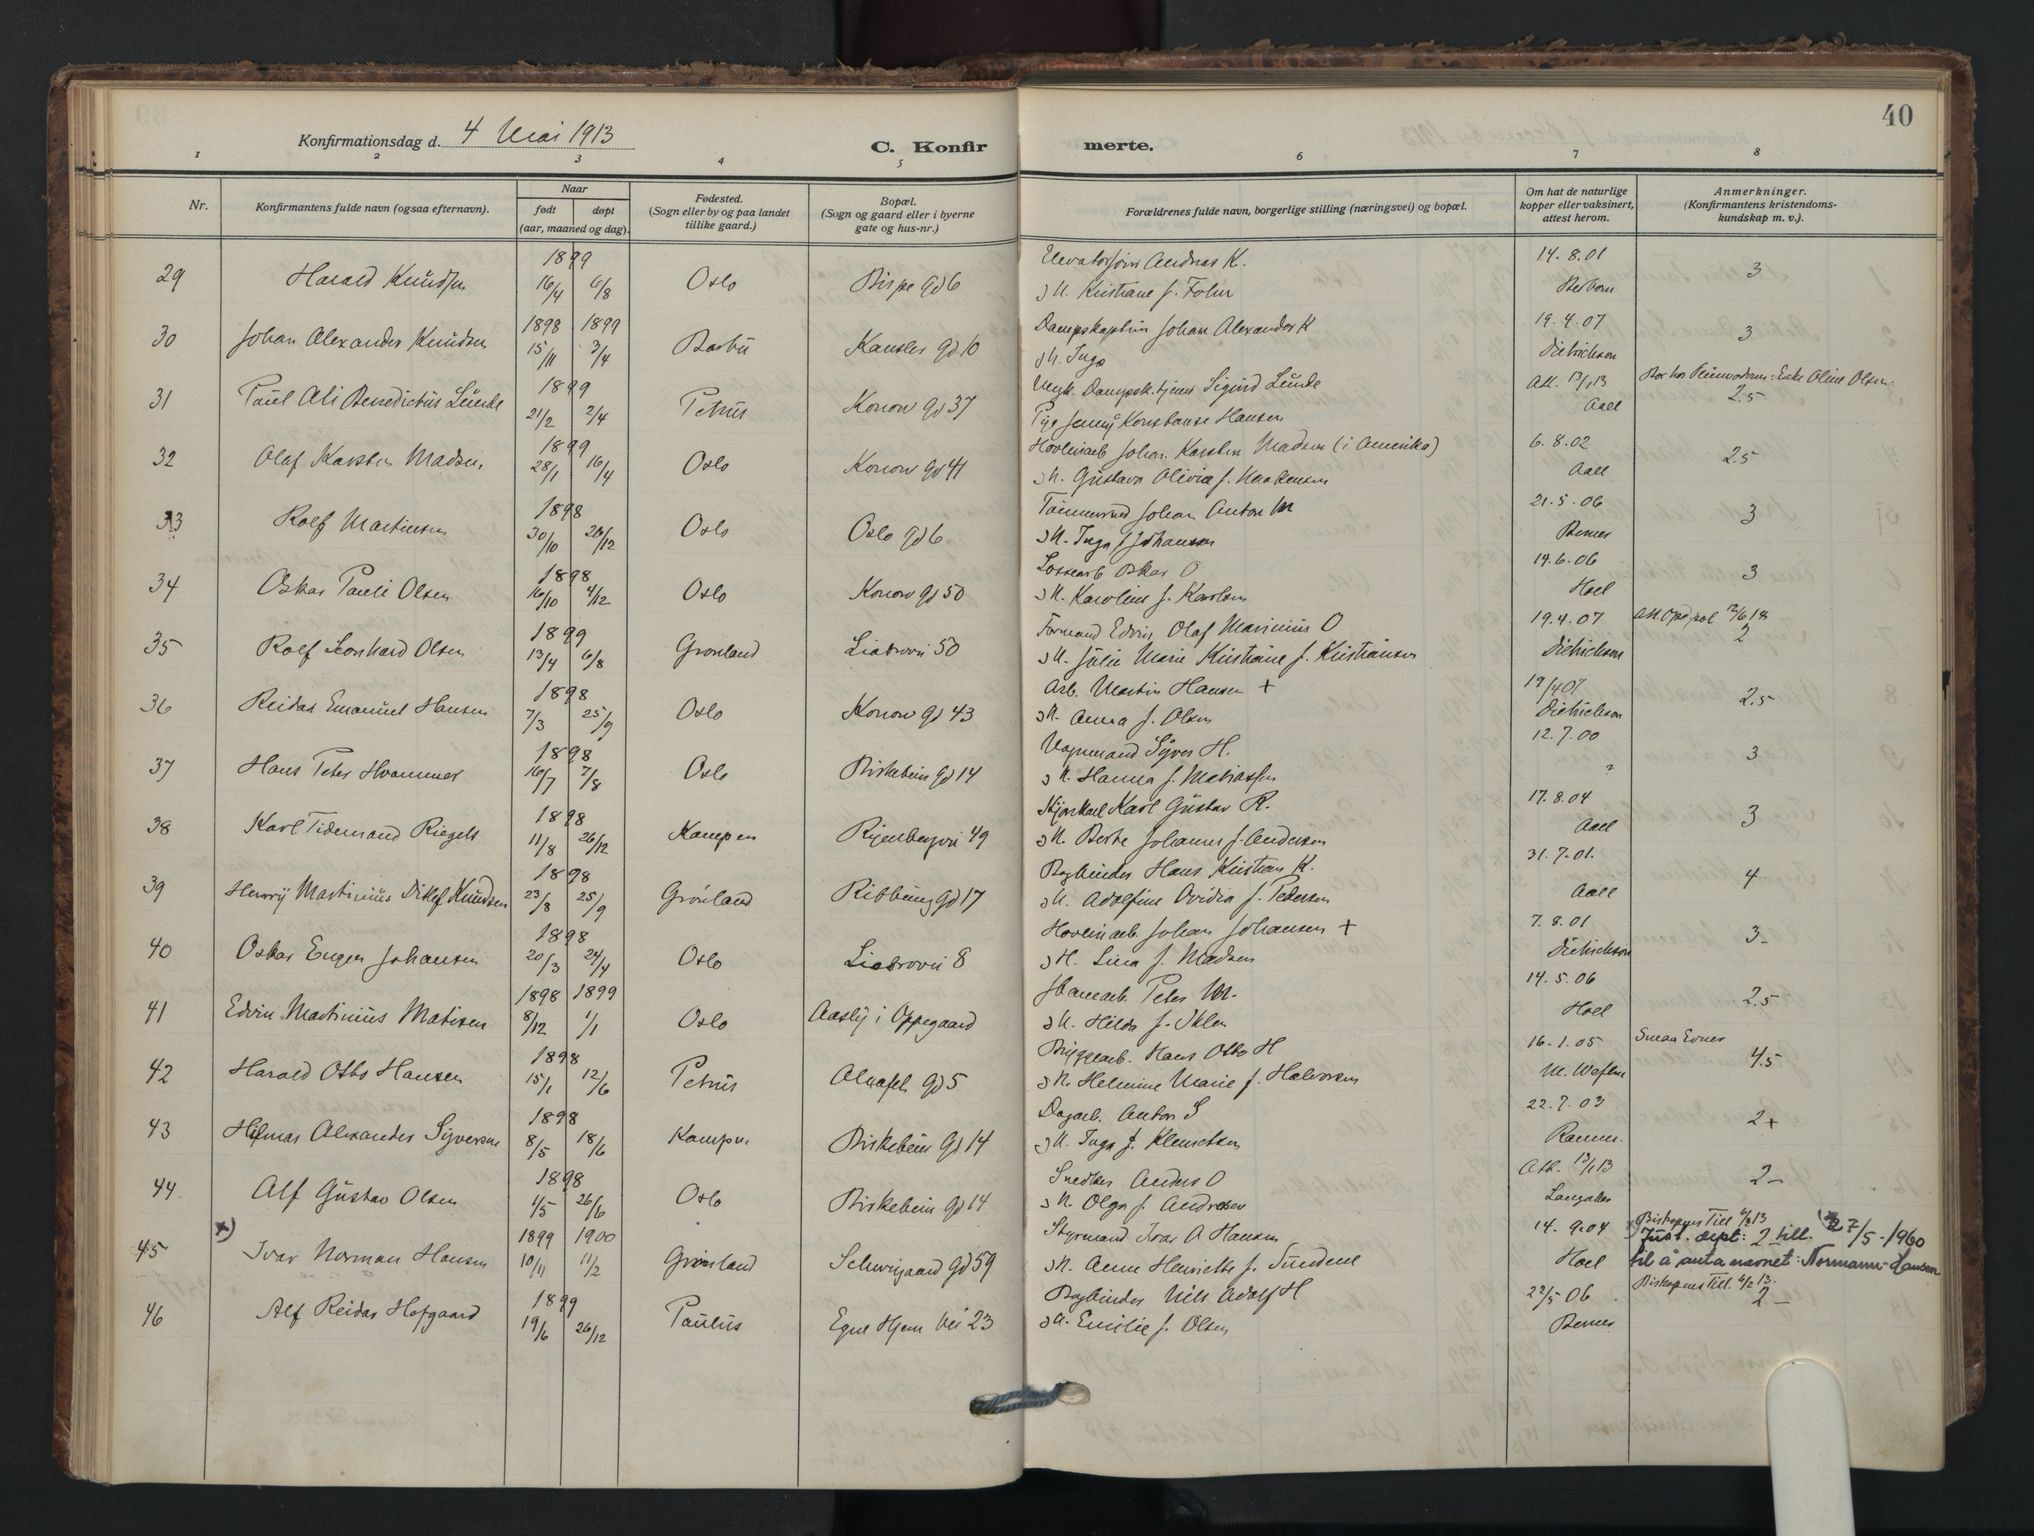 40
Konfirmationsdag d. 4 Mai 1913
C. Konfirmerte.
1 2 3 4 5 6 7 8
Nr.
Konfirmantens fulde navn (ogsaa efternavn).
Naar
født døpt
(aar, maaned og dag).
Fødested.
(Sogn eller by og paa landet
tillike gaard.)
Bopæl.
(Sogn og gaard eller i byerne
gate og hus-nr.)
Forældrenes fulde navn, borgerlige stilling (næringsvei) og bopæl.
Om hat de naturlige
kopper eller vaksinert,
attest herom.
Anmerkninger.
(Konfirmantens kristendoms-
kundskap m. v.).
1899 Andreas K. 14.8.01
29 Harald Knudsen 16/4 6/8 Oslo Bispe Gd 6 Kristiane f. 3
1898 1899 Johan Alexander K 19.4.07
30 Johan Alexander Knudsen 15/11 3/4 Barbu Kansler Gd 10 Inga Dietrichson 3
1899 Ungk. Sigurd Lunde Att. 13/1 13 Oline Olsen
31 Paul Ali Benedictus Lunde 21/2 2/4 Petrus Konow Gd 37 Pige Jenny Konstanse Hansen Aall 2.5
1899 Høvleriarb Johan Karsten Madsen (i Amerika) 6.8.02
32 Olaf Karsten Madsen 28/1 16/4 Oslo Konow Gd 41 Gustava Olivia f. Aall 2.5
1898 Tømmermd Johan Anton M 21.5.06
33 Rolf Martinsen 30/10 26/12 Oslo Oslo Gd 6 Inga f Johansen Berner 3
1898 Lossearb Oskar O 14.6.06
34 Oskar Pauli Olsen 16/10 4/12 Oslo Konow Gd 50 Karoline f. Karlsen Hoel 3
1899 Formand Edvin Olaf Marinius O 19.4.07 12/6 18
35 Rolf Leonhard Olsen 13/4 6/8 Grønland Liabrovei 50 Julie Marie Kristiane f. Kristiansen Dietrichson 2
1898 Arb. Martin Hansen + 19/4 07
36 Reidar Emanuel Hansen 7/3 25/9 Oslo Konow Gd 43 Anna f. Olsen Dietrichson 2.5
1898 Vognmand Syver H. 12.7.00
37 Hans Peter Hvammer 16/7 7/8 Oslo Birkebein Gd 14 Hanna f. Matiassen ? 3
1898 Karl Gustav R. 17.8.04
38 Karl Tidemand Riegels 11/8 26/12 Kampen Ryenbergvei 49 Berte Johanne f. Andersen Aall 3
1898 Bogbinder Hans Kristian K. 31.7.01.
39 Henry Martinius Ditlef Knudsen 23/8 25/9 Grønland Ribbung Gd 17 Adolfine Ovidia f. Pedersen Aall 4
1898 Høvleriarb. Johan Johansen + 7.8.01
40 Oskar Eugen Johansen 20/3 24/4 Oslo Liabrovei 8 Lina f. Madsen Dietrichson 3-
1898 1899 Peter M. 14.5.06
41 Edvin Martinius Matisen 8/12 1/1 Oslo Aasly i Oppegaard Hilda f. Hoel 2.5
1898 Bryggearb. Hans Otto H 16.1.05
42 Harald Otto Hansen 15/1 12/6 Petrus Alnafet Gd 5 Helmine Marie f. Halvorsen 4.5
1898 Dagarb. Anton S 22.7.03
43 Hilmar Alexander Syversen 8/5 18/6 Kampen Birkebein Gd 14 Inga f. Klemetsen 2+
1898 Snedker Anders O Att. 13/1 13
44 Alf Gustav Olsen 1/5 26/6 Oslo Birkebein Gd 14 Olga f. Andresen 2-
x) 1899 1900 Styrmand Ivar A Hansen 14.9.04 Biskopens Till 4/2 13
45 Ivar Norman Hansen 10/11 11/2 Grønland Schweigaard Gd 59 Anne Henriette f. Hoel Just. dept: 2 till. 27/5-1960
til å anta navnet: Normann-Hansen
1899 Bogbinder Nils Adolf H 22/5 06 Biskopens Till. 4/2 13.
46 Alf Reidar Hofgaard 19/6 26/12 Paulus Eget Hjem Vei 23 Emilie f. Olsen Berner 2-